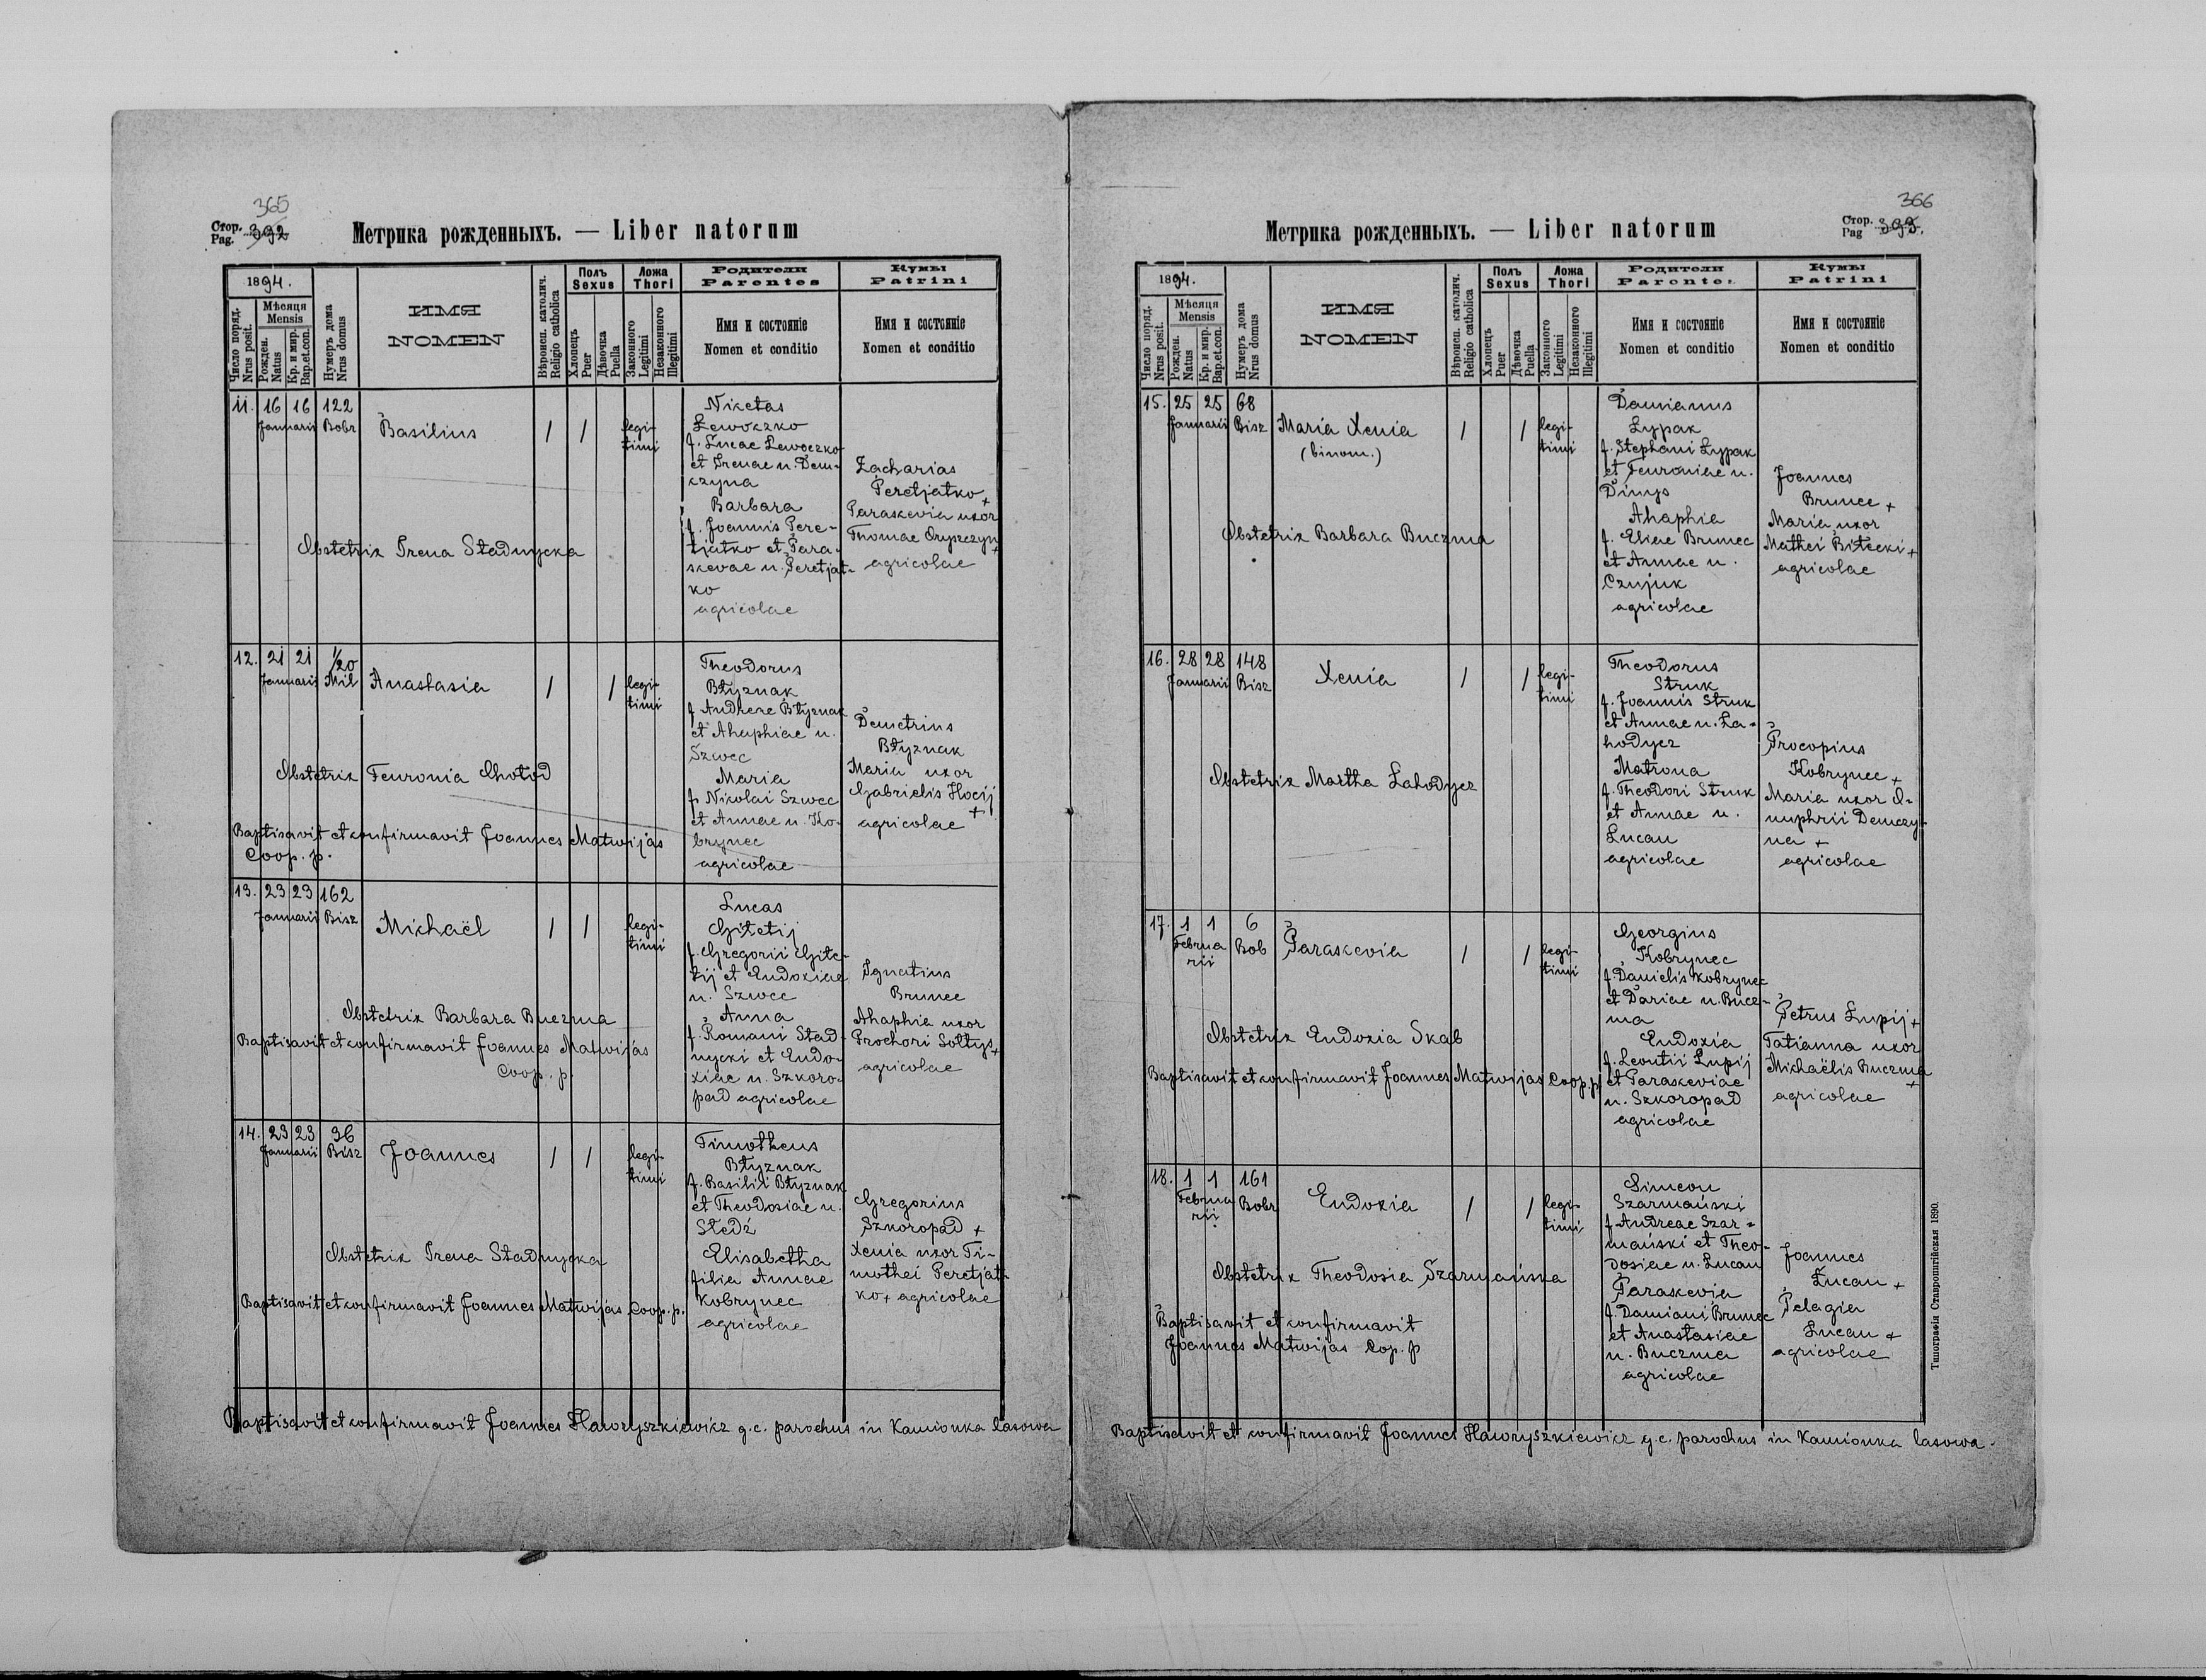 365
Стор.
Pag. 392
Метрика рожденныхъ. — Liber natorum
1894.
Число поряд.
Nrus posit.
Мѣсяця
Mensis
Рожден.
Natus
Кр. и мир.
Bap.et.con.
Нумеръ дома
Nrus domus
ИМЯ
NOMEN
Вѣроисп. католич.
Religio catholica
Полъ
Sexus
Хлопецъ
Puer
Дѣвочка
Puella
Ложа
Thori
Законного
Legitimi
Незаконного
Illegitimi
Родители
Parentes
Имя и состоянiе
Nomen et conditio
Кумы
Patrini
Имя и состоянiе
Nomen et conditio
11. 16 16 122
Januarii Bobr
Basilius
1 1
legi-
timi
Nicetas
Lewoczko
f. Lucae Lewoczko
et Irenae n. Dem-
czyna
Barbara
f. Joannis Pere-
tjatko et Para-
skevae n. Peretjat-
ko
agricolae
Zacharias
Peretjatko +
Paraskevia uxor
Thomae Oryszczyn +
agricolae
Obstetrix Irena Stadnycka
12. 21 21 1/20
Januarii Mil
Anastasia
1 1
legi-
timi
Theodorus
Błyznak
f. Andreae Błyznak
et Ahaphiae n.
Szwec
Maria
f. Nikolai Szwec
et Annae n. Ko-
brynec
agricolae
Demetrius
Błyznak
Maria uxor
Gabrielis Hocij
+
agricolae
Obstetrix Feuronia Chołod
Baptisavit et confirmavit Joannes Matwijas
Coop. p.
13. 23 23 162
Januarii Bisz
Michaël
1 1
legi-
timi
Lucas
Gitetij
f. Gregorii Gite-
tij et Eudoxiae
n. Szwec
Anna
f. Romani Stad-
nycki et Eudo-
xiae n. Szkoro-
pad agricolae
Ignatius
Brunec
Ahaphia uxor
Prochori Sołtys +
agricolae
Obstetrix Barbara Buczma
Baptisavit et confirmavit Joannes Matwijas
Coop. p.
14. 23 23 36
Januarii Bisz
Joannes
1 1
legi-
timi
Timotheus
Błyznak
f. Basilii Błyznak
et Theodosiae n.
Stedź
Elisabetha
filia Annae
Kobrynec
agricolae
Gregorius
Szkoropad +
Xenia uxor Ti-
mothei Peretjat-
ko + agricolae
Obstetrix Irena Stadnycka
Baptisavit et confirmavit Joannes Matwijas Coop. p.
Baptisavit et confirmavit Joannes Hawryszkiewicz g.c. parochus in Kamionka lasowa
366
Метрика рожденныхъ. — Liber natorum
Стор.
Pag 393.
1894.
Число поряд.
Nrus posit.
Мѣсяця
Mensis
Рожден.
Natus
Кр. и мир.
Bap.et.con.
Нумеръ дома
Nrus domus
ИМЯ
NOMEN
Вѣроисп. католич.
Religio catholica
Полъ
Sexus
Хлопецъ
Puer
Дѣвочка
Puella
Ложа
Thori
Законного
Legitimi
Незаконного
Illegitimi
Родители
Parentes
Имя и состоянiе
Nomen et conditio
Кумы
Patrini
Имя и состоянiе
Nomen et conditio
15. 25 25 68
Januarii Bisz
Maria Xenia
(binom.)
1 1
legi-
timi
Damianus
Łypak
f. Stephani Łypak
et Feuroniae n.
Dinys
Ahaphia
f. Eliae Brunec
et Annae n.
Czujuk
agricolae
Joannes
Brunec +
Maria uxor
Mathei Bitecki +
agricolae
Obstetrix Barbara Buczma
16. 28 28 148
Januarii Bisz
Xenia
1 1
legi-
timi
Theodorus
Struk
f. Joannis Struk
et Annae n. La-
hodycz
Matrona
f. Theodori Struk
et Annae n.
Lucau
agricolae
Procopius
Kobrynec +
Maria uxor O-
nuphrii Demczy-
na +
agricolae
Obstetrix Martha Lahodycz
17. 1 1 6
Februa
rii Bob
Paraskevia
1 1
legi-
timi
Georgius
Kobrynec
f. Danielis Kobrynec
et Dariae n. Bucz-
ma
Eudoxia
f. Leontii Lupij
et Paraskeviae
n. Szkoropad
agricolae
Petrus Lupij +
Tatianna uxor
Michaëlis Buczma
+
agricolae
Obstetrix Eudoxia Skab
Baptisavit et confirmavit Joannes Matwijas Coop. p.
18. 1 1 161
Februa
rii Bobr
Eudoxia
1 1
legi-
timi
Simeon
Szarmański
f. Andreae Szar-
mański et Theo-
dosiae n. Lucau
Paraskevia
f. Damiani Brunec
et Anastasiae
n. Buczma
agricolae
Joannes
Lucau +
Pelagia
Lucau +
agricolae
Obstetrix Theodosia Szarmańska
Baptisavit et confirmavit
Joannes Matwijas Cop. p
Baptisavit et confirmavit Joannes Hawryszkiewicz g.c. parochus in Kamionka lasowa.
Типографія Ставропигійская 1890.